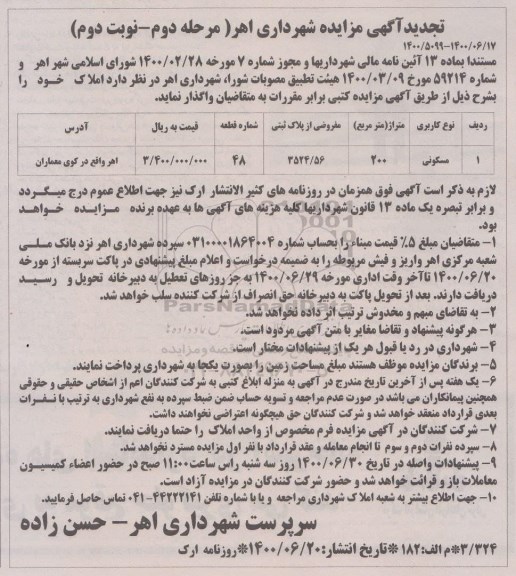 تجدیدآگهی مزایده شهرداری اهر( مرحله دوم-نوبت دوم)
۱۴۰۰/۵۰۹۹-۱۴۰۰/۰۶/۱۷
مستندا بماده ۱۳ آئین نامه مالی شهرداریها و مجوز شماره ۷ مورخه ۱۴۰۰/۰۲/۲۸ شورای اسلامی شهر اهر و
شماره ۵۹۲۱۴ مورخ ۱۴۰۰/۰۳/۰۹ هیئت تطبیق مصوبات شورا، شهرداری اهر در نظر دارد املاک خود را
بشرح ذیل از طریق آگهی مزایده کتبی برابر مقررات به متقاضیان واگذار نماید.
ردیف نوع کاربری متراژ(متر مربع) مفروضی از پلاک ثبتی شماره قطعه قیمت به ریال آدرس
۱ مسکونی ۲۰۰ ۳۵۲۴/۵۶ ۴۸ ۳/۴۰۰/۰۰۰/۰۰۰ اهر واقع در کوی معماران
لازم به ذکر است آگهی فوق همزمان در روزنامه های کثیر الانتشار ارک نیز جهت اطلاع عموم درج میگردد
و برابر تبصره یک ماده ۱۳ قانون شهرداریها کلیه هزینه های آگهی ها به عهده برنده مزایده خواهد
بود.
۱- متقاضیان مبلغ ۵٪ قیمت مبناء را بحساب شماره ۰۳۱۰۰۰۰۱۸۶۴۰۰۴ سپرده شهرداری اهر نزد بانک ملی
شعبه مرکزی اهر واریز و فیش مربوطه را به ضمیمه درخواست و اعلام مبلغ پیشنهادی در پاکت سربسته از مورخه
۱۴۰۰/۰۶/۲۰ تاآخر وقت اداری مورخه ۱۴۰۰/۰۶/۲۹ به جز روزهای تعطیل به دبیرخانه تحویل و رسید
دریافت دارند. بعد از تحویل پاکت به دبیرخانه حق انصراف از شرکت کننده سلب خواهد شد.
ParsNamadData
۲- به تقاضای مبهم و مخدوش ترتیب اثر داده نخواهد شد.
۳- هرگونه پیشنهاد و تقاضا مغایر با متن آگهی مردود است.
۴- شهرداری در رد یا قبول هر یک از پیشنهادات مختار است.
۵- برندگان مزایده موظف هستند مبلغ مساحت زمین را بصورت یکجا به شهرداری پرداخت نمایند.
۶- یک هفته پس از آخرین تاریخ مندرج در آگهی به منزله ابلاغ کتبی به شرکت کنندگان اعم از اشخاص حقیقی و حقوقی
همچنین پیمانکاران می باشد در صورت عدم مراجعه و تسویه حساب ضمن ضبط سپرده به نفع شهرداری به ترتیب با نفرات
بعدی قرارداد منعقد خواهد شد و شرکت کنندگان حق هیچگونه اعتراضی نخواهند داشت.
۷- شرکت کنندگان در آگهی مزایده فرم مخصوص از واحد املاک را حتما دریافت نمایند.
۸- سپرده نفرات دوم و سوم تا انجام معامله و عقد قرارداد با نفر اول مزایده مسترد نخواهد شد.
۹- پیشنهادات واصله در تاریخ ۱۴۰۰/۰۶/۳۰ روز سه شنبه راس ساعت ۱۱:۰۰ صبح در حضور اعضاء کمیسیون
معاملات باز و قرائت خواهد شد و حضور شرکت کنندگان در مزایده آزاد است.
۱۰- جهت اطلاع بیشتر به شعبه املاک شهرداری مراجعه و یا با شماره تلفن ۴۴۲۲۲۱۴۱-۰۴۱ تماس حاصل فرمایید.
سرپرست شهرداری اهر- حسن زاده
۳/۳۲۴*م الف:۱۸۲ *تاریخ انتشار:۱۴۰۰/۰۶/۲۰*روزنامه ارک